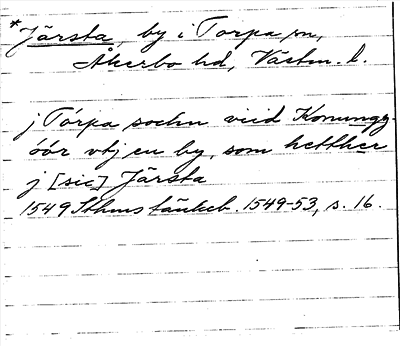 *Järsta, by i Torpa sn,
Åkerbo hd, Västm. l.
j Torpa sochn viid Konungz-
öör vtj en by, som hetther
j [sic] Järsta
1549 Sthms tänkeb. 1549-53, s. 16.